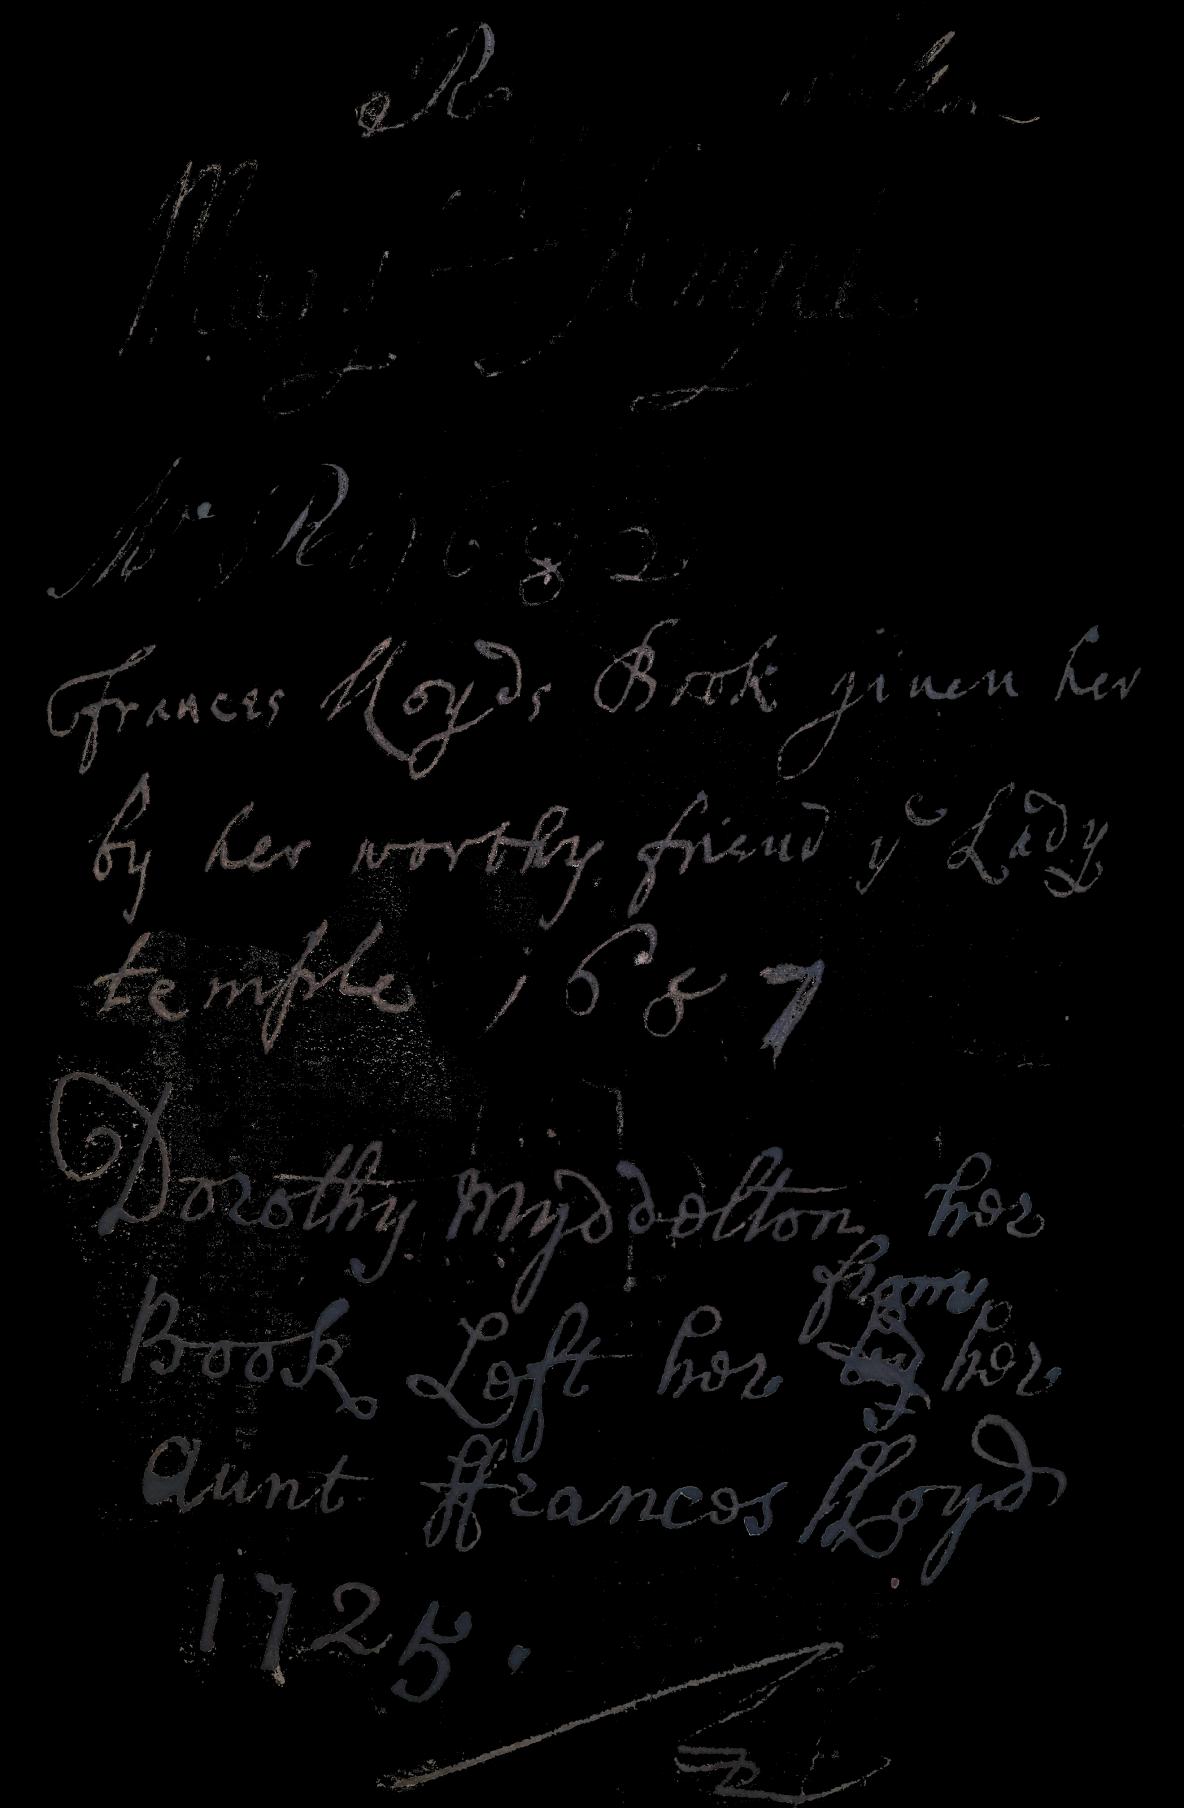 Mary
1682
ffrances lloyds Book giuen her
by her worthy friend yᵉ Lady
temple 1687
Dorothy Myddelton her
Book Left her from her
Aunt ffrances lloyd
1725.